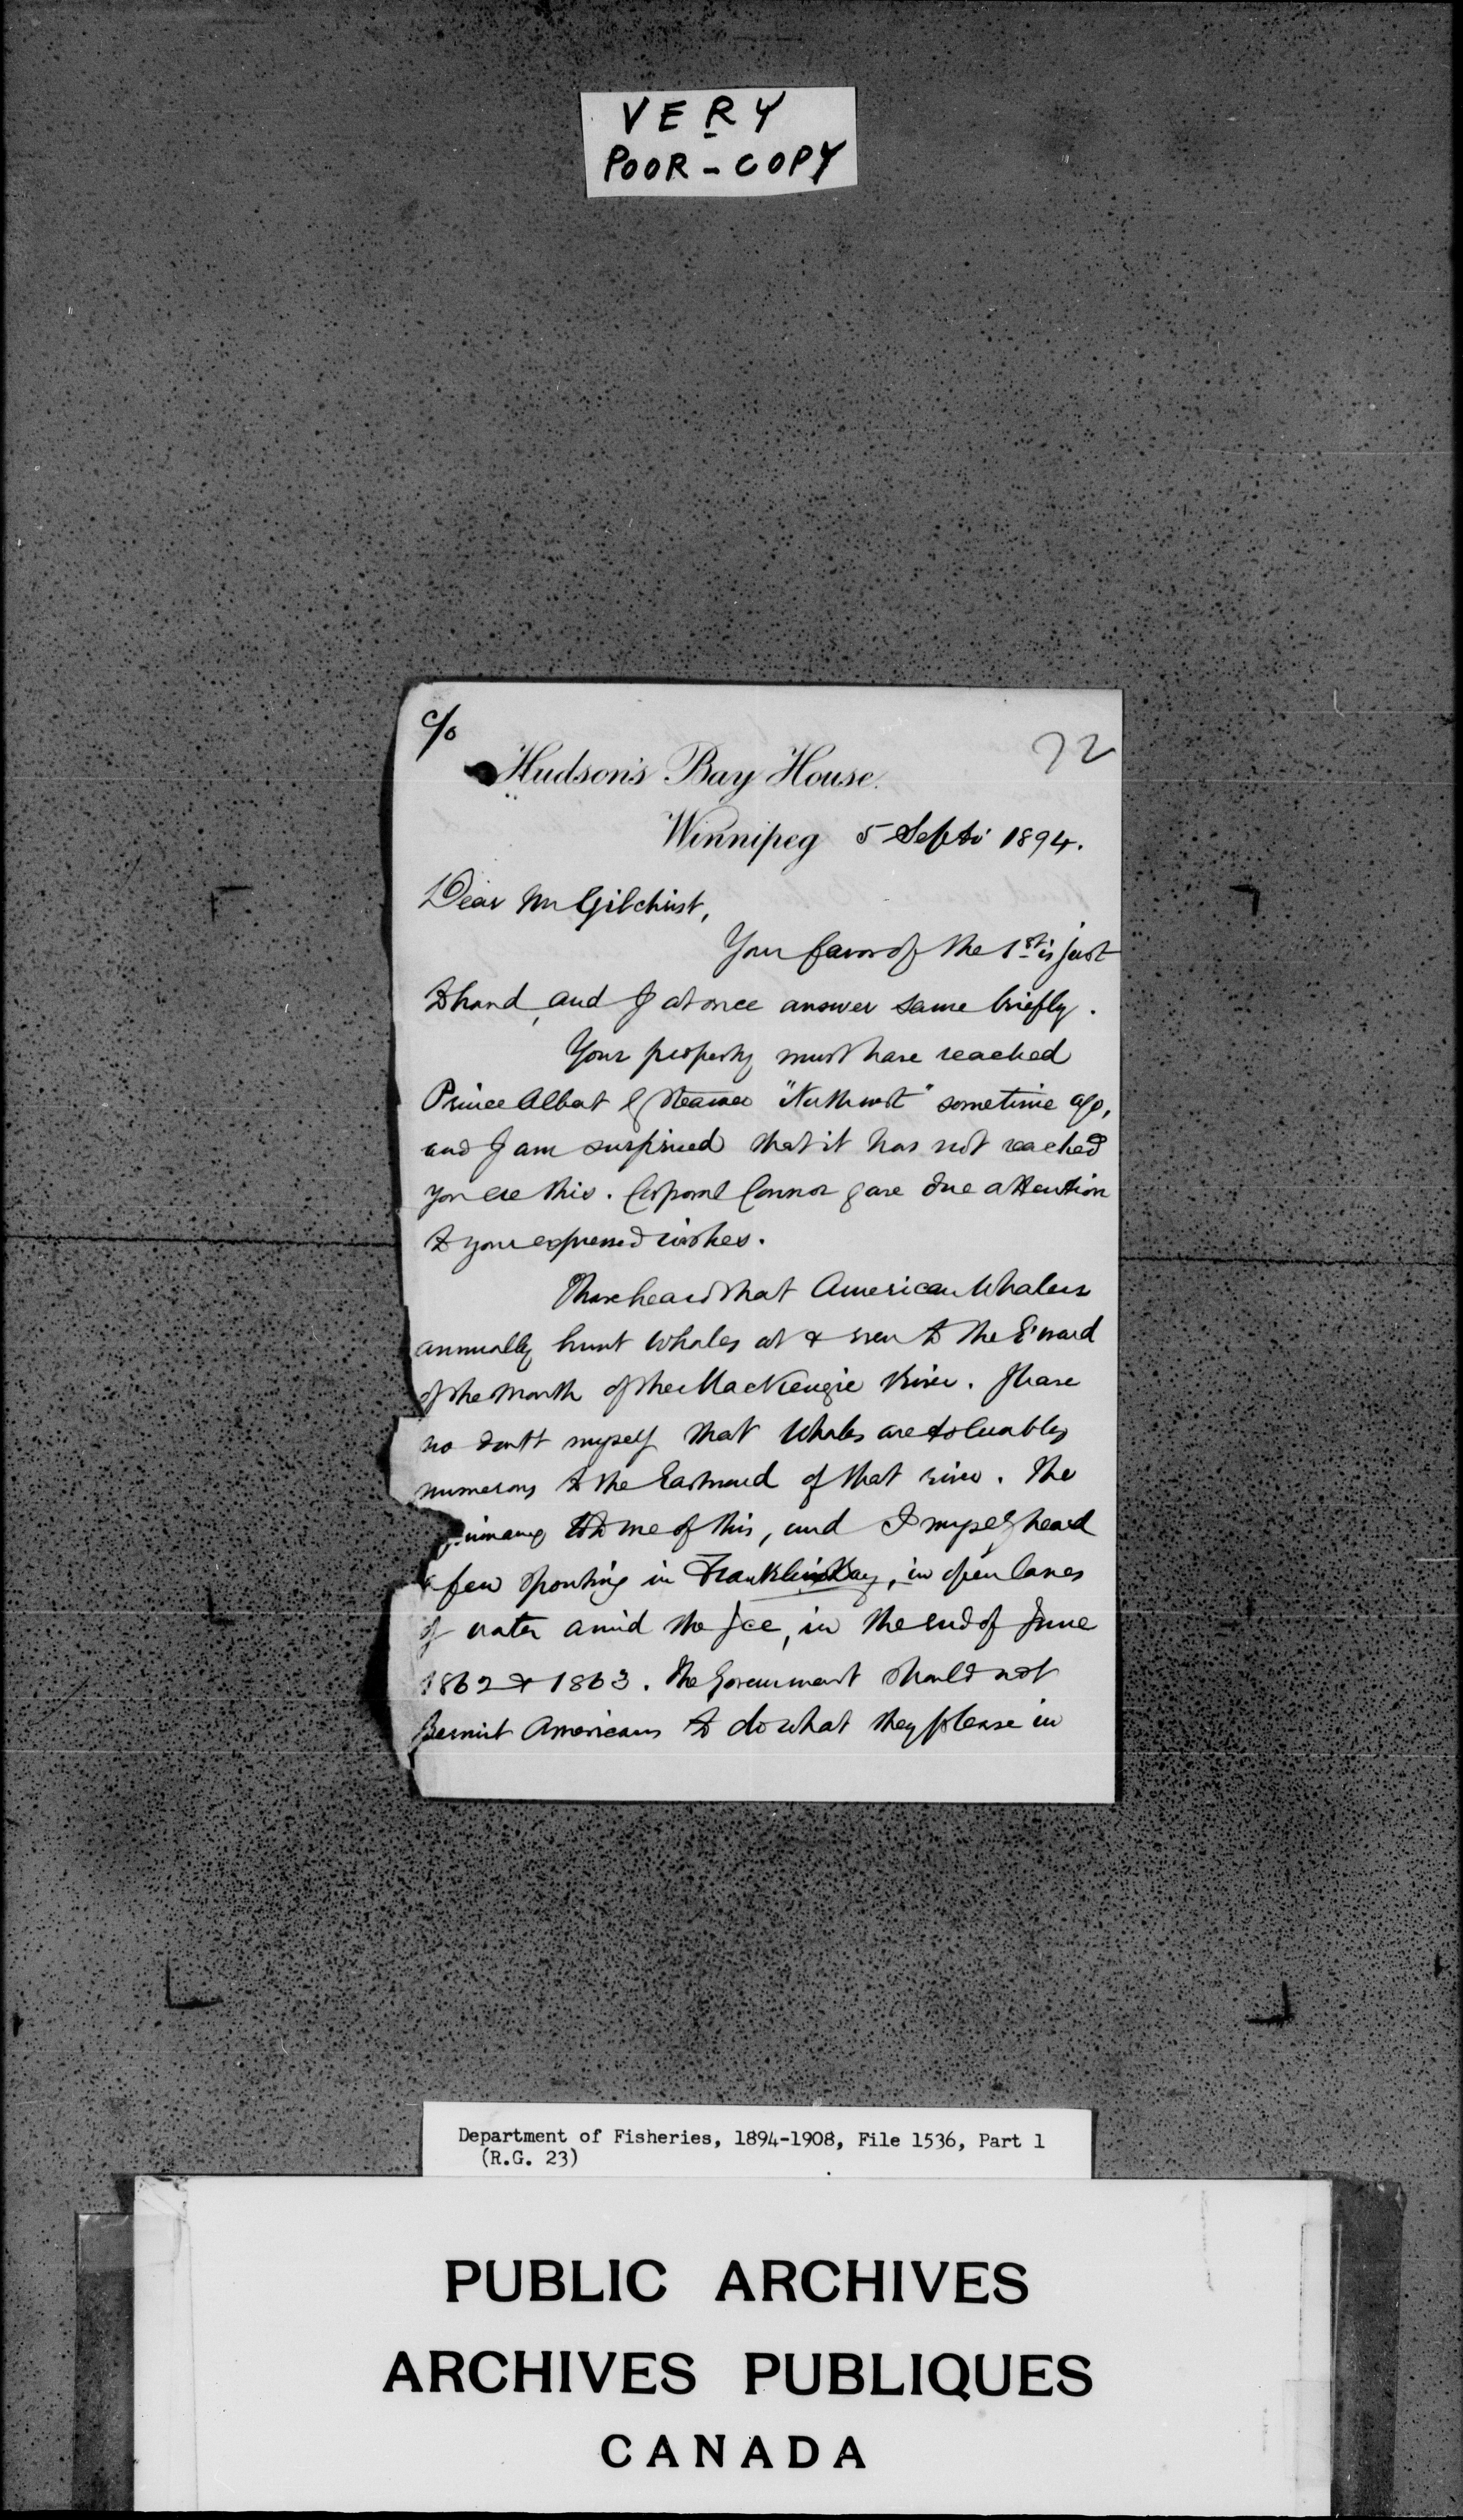 VERY
POOR - COPY
c/o
72
Hudson's Bay House.
Winnipeg 5 Septr 1894.
Dear Mr Gilchrist,
Your favor of the 1st is just
to hand, and I at once answer same briefly.
Your property must have reached
Prince Albert steamer "Northwest" sometime ago,
and I am surprised that it has not reached
you ere this. Corporal Connor gave due attention
to your expressed wishes.
I have heard that American Whalers
annually hunt Whales at & even to the E'ward
of the Mouth of the MacKenzie River. I have
no doubt myself that Whales are tolerably
numerous to the Eastward of that river. The
told me of this, and I myself heard
a few spouting in Franklin Bay, in open lanes
of water amid the Ice, in the end of June
1862 & 1863. The Government should not
permit Americans to do what they please in
Department of Fisheries, 1894-1908, File 1536, Part 1
(R.G. 23)
PUBLIC ARCHIVES
ARCHIVES PUBLIQUES
CANADA